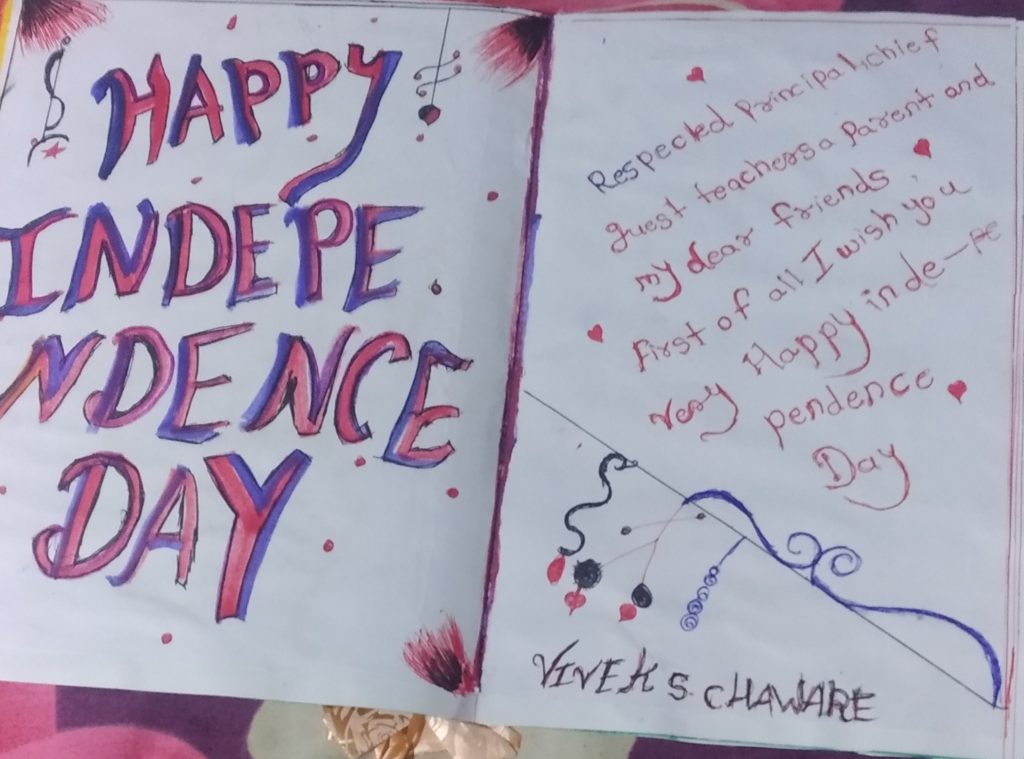 HAPPY
INDEPE
NDENCE
DAY
Respected Principal, chief
guest teachers a parent and
my dear friends.
First of all I wish you
very Happy inde-pe
pendence
Day
VIVEK S CHAWARE